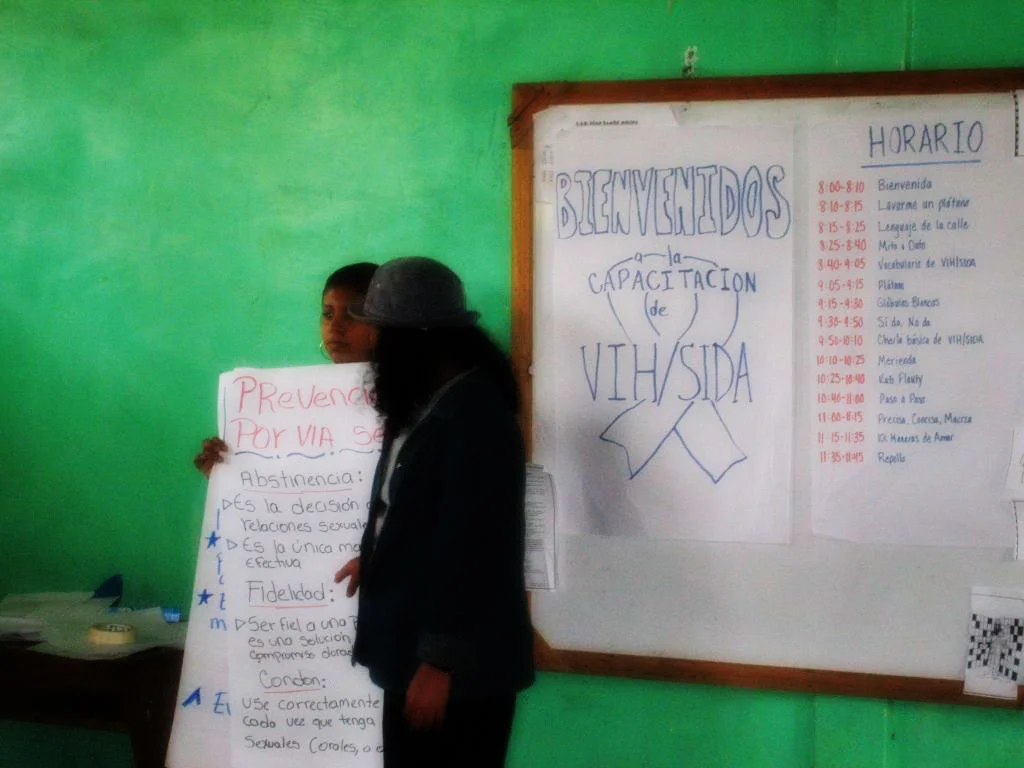 PRevenci
POR VIA se
Abstinencia:
Es la decisión
relaciones sexuale
Es la única ma
efectiva
Fidelidad:
Ser fiel a una
es una solución
compromiso durad
Condon:
use correctamente
cada vez que tenga
sexuales (orales, o
BIENVENIDOS
a la
CAPACITACION
de
VIH/SIDA
HORARIO
8:00-8:10 Bienvenida
8:10-8:15 Lavarme un plátano
8:15-8:25 Lenguaje de la calle
8:25-8:40 Mito o Dato
8:40-9:05 Vocabulario de VIH/SIDA
9:05-9:15 Plátano
9:15-9:30 Glóbulos Blancos
9:30-9:50 Si da, No da
9:50-10:10 Charla básica de VIH/SIDA
10:10-10:25 Merienda
10:25-10:40
10:40-11:00 Paso a Paso
11:00-11:15 Precisa, Concisa, Maciza
11:15-11:35 Maneras de Amar
11:35-11:45 Repollo